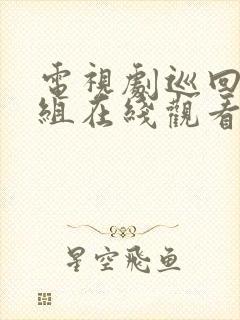 電視劇巡回
組在綫觀看
星空飛鱼